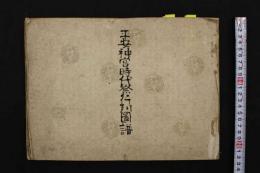 平安神宮時代祭行列圖譜